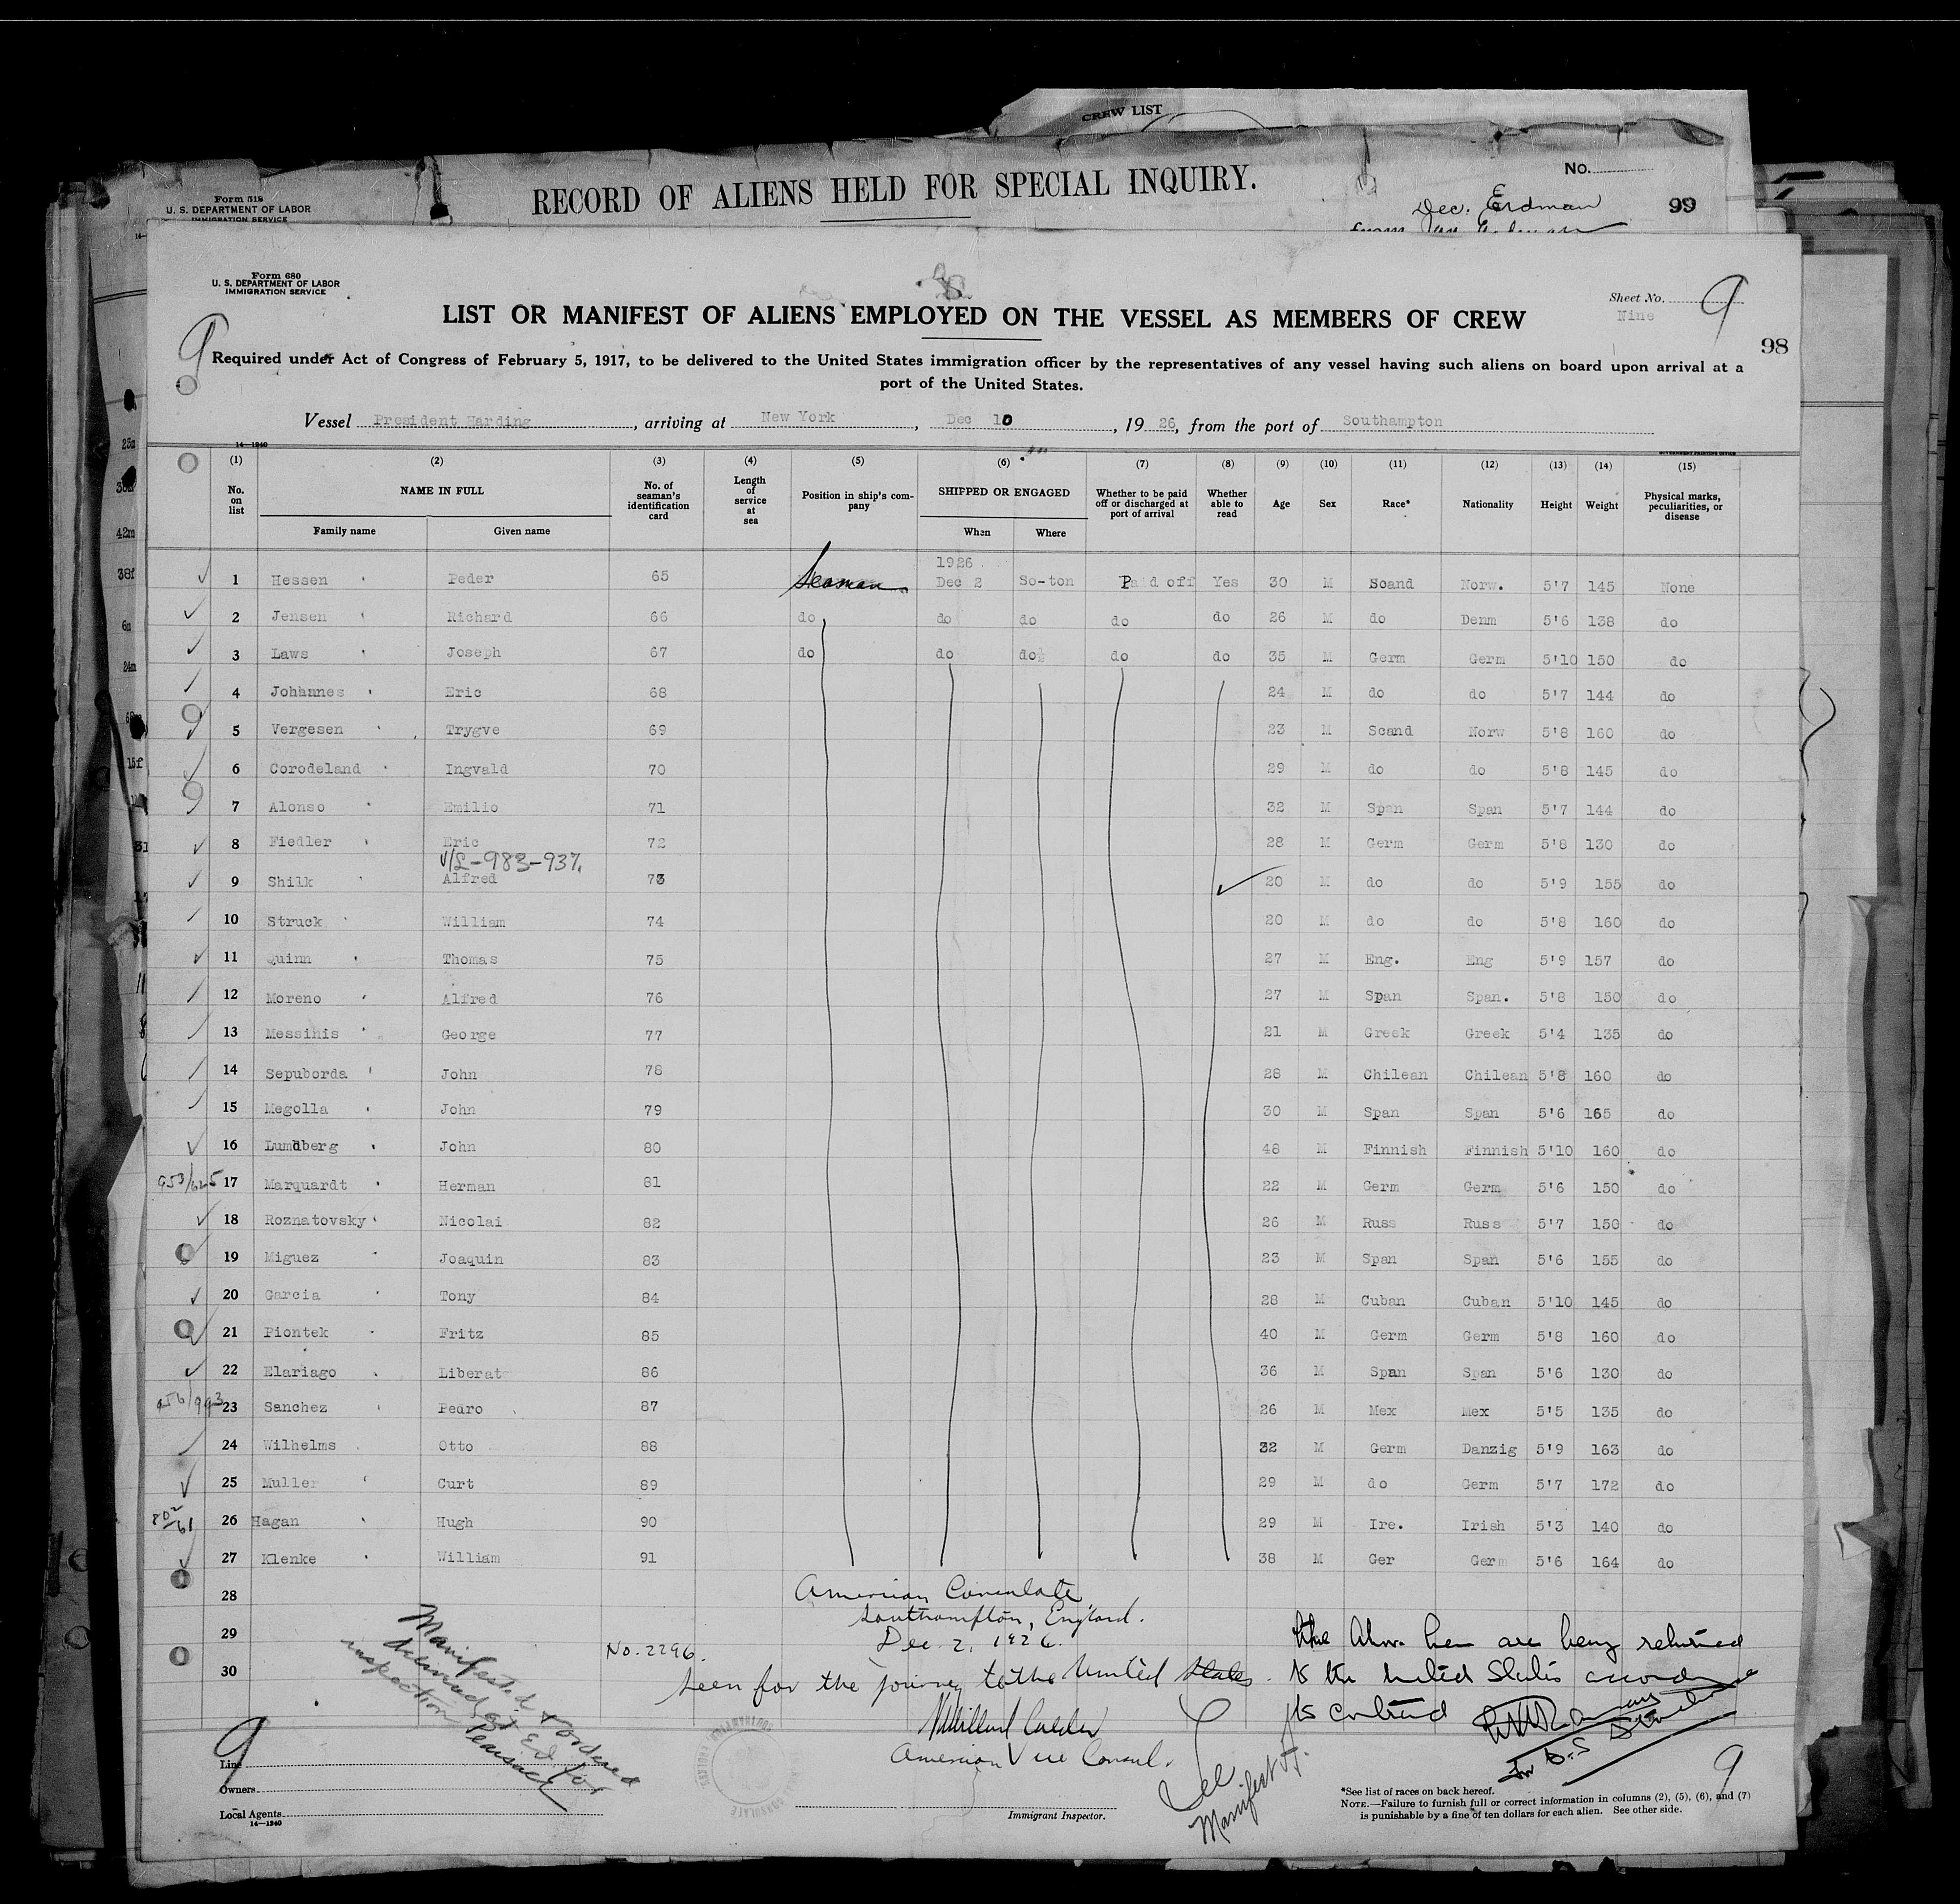 CREW LIST
Form 518
U. S. DEPARTMENT OF LABOR
IMMIGRATION SERVICE
RECORD OF ALIENS HELD FOR SPECIAL INQUIRY.
No.
Dec. Erdman
99
Form 680
U. S. DEPARTMENT OF LABOR
IMMIGRATION SERVICE
LIST OR MANIFEST OF ALIENS EMPLOYED ON THE VESSEL AS MEMBERS OF CREW
Sheet No. 9
Nine
9
98
Required under Act of Congress of February 5, 1917, to be delivered to the United States immigration officer by the representatives of any vessel having such aliens on board upon arrival at a
port of the United States.
Vessel President Harding, arriving at New York, Dec 10, 1926, from the port of Southampton
14—1240
(1) (2) (3) (4) (5) (6) (7) (8) (9) (10) (11) (12) (13) (14) (15)
No. on list NAME IN FULL Family name Given name No. of seaman's identification card Length of service at sea Position in ship's company SHIPPED OR ENGAGED When Where Whether to be paid off or discharged at port of arrival Whether able to read Age Sex Race* Nationality Height Weight Physical marks, peculiarities, or disease
1926
1 Hessen Peder 65 Seaman Dec 2 So-ton Paid off Yes 30 M Scand Norw. 5'7 145 None
2 Jensen Richard 66 do do do do do 26 M do Denm 5'6 138 do
3 Laws Joseph 67 do do do do do 35 M Germ Germ 5'10 150 do
4 Johhanes Eric 68 24 M do do 5'7 144 do
5 Vergesen Trygve 69 23 M Scand Norw 5'8 160 do
6 Corodeland Ingvald 70 29 M do do 5'8 145 do
7 Alonso Emilio 71 32 M Span Span 5'7 144 do
8 Fiedler Eric 72 28 M Germ Germ 5'8 130 do
V/L-983-937.
9 Shilk Alfred 73 20 M do do 5'9 155 do
10 Struck William 74 20 M do do 5'8 160 do
11 Quinn Thomas 75 27 M Eng. Eng 5'9 157 do
12 Moreno Alfred 76 27 M Span Span. 5'8 150 do
13 Messinis George 77 21 M Greek Greek 5'4 135 do
14 Sepuborda John 78 28 M Chilean Chilean 5'8 160 do
15 Megolla John 79 30 M Span Span 5'6 165 do
16 Lumdberg John 80 48 M Finnish Finnish 5'10 160 do
953/625 17 Marquardt Herman 81 22 M Germ Germ 5'6 150 do
18 Roznatovsky Nicolai 82 26 M Russ Russ 5'7 150 do
19 Miguez Joaquin 83 23 M Span Span 5'6 155 do
20 Garcia Tony 84 28 M Cuban Cuban 5'10 145 do
21 Piontek Fritz 85 40 M Germ Germ 5'8 160 do
22 Elariago Liberat 86 36 M Span Span 5'6 130 do
956/993 23 Sanchez Pedro 87 26 M Mex Mex 5'5 135 do
24 Wilhelms Otto 88 32 M Germ Danzig 5'9 163 do
25 Muller Curt 89 29 M do Germ 5'7 172 do
26 Hagan Hugh 90 29 M Ire. Irish 5'3 140 do
27 Klenke William 91 38 M Ger Germ 5'6 164 do
28
29
30
American Consulate
Southampton, England.
Dec. 2, 1926.
No. 2296.
Seen for the journey to the United States.
American Vice Consul.
the above men are being returned
to the United States
its contract
Manifested & ordered
for
inspection
See
Manifest
9
Line
Owners
Local Agents
14—1240
Immigrant Inspector.
9
*See list of races on back hereof.
NOTE.—Failure to furnish full or correct information in columns (2), (5), (6), and (7)
is punishable by a fine of ten dollars for each alien. See other side.